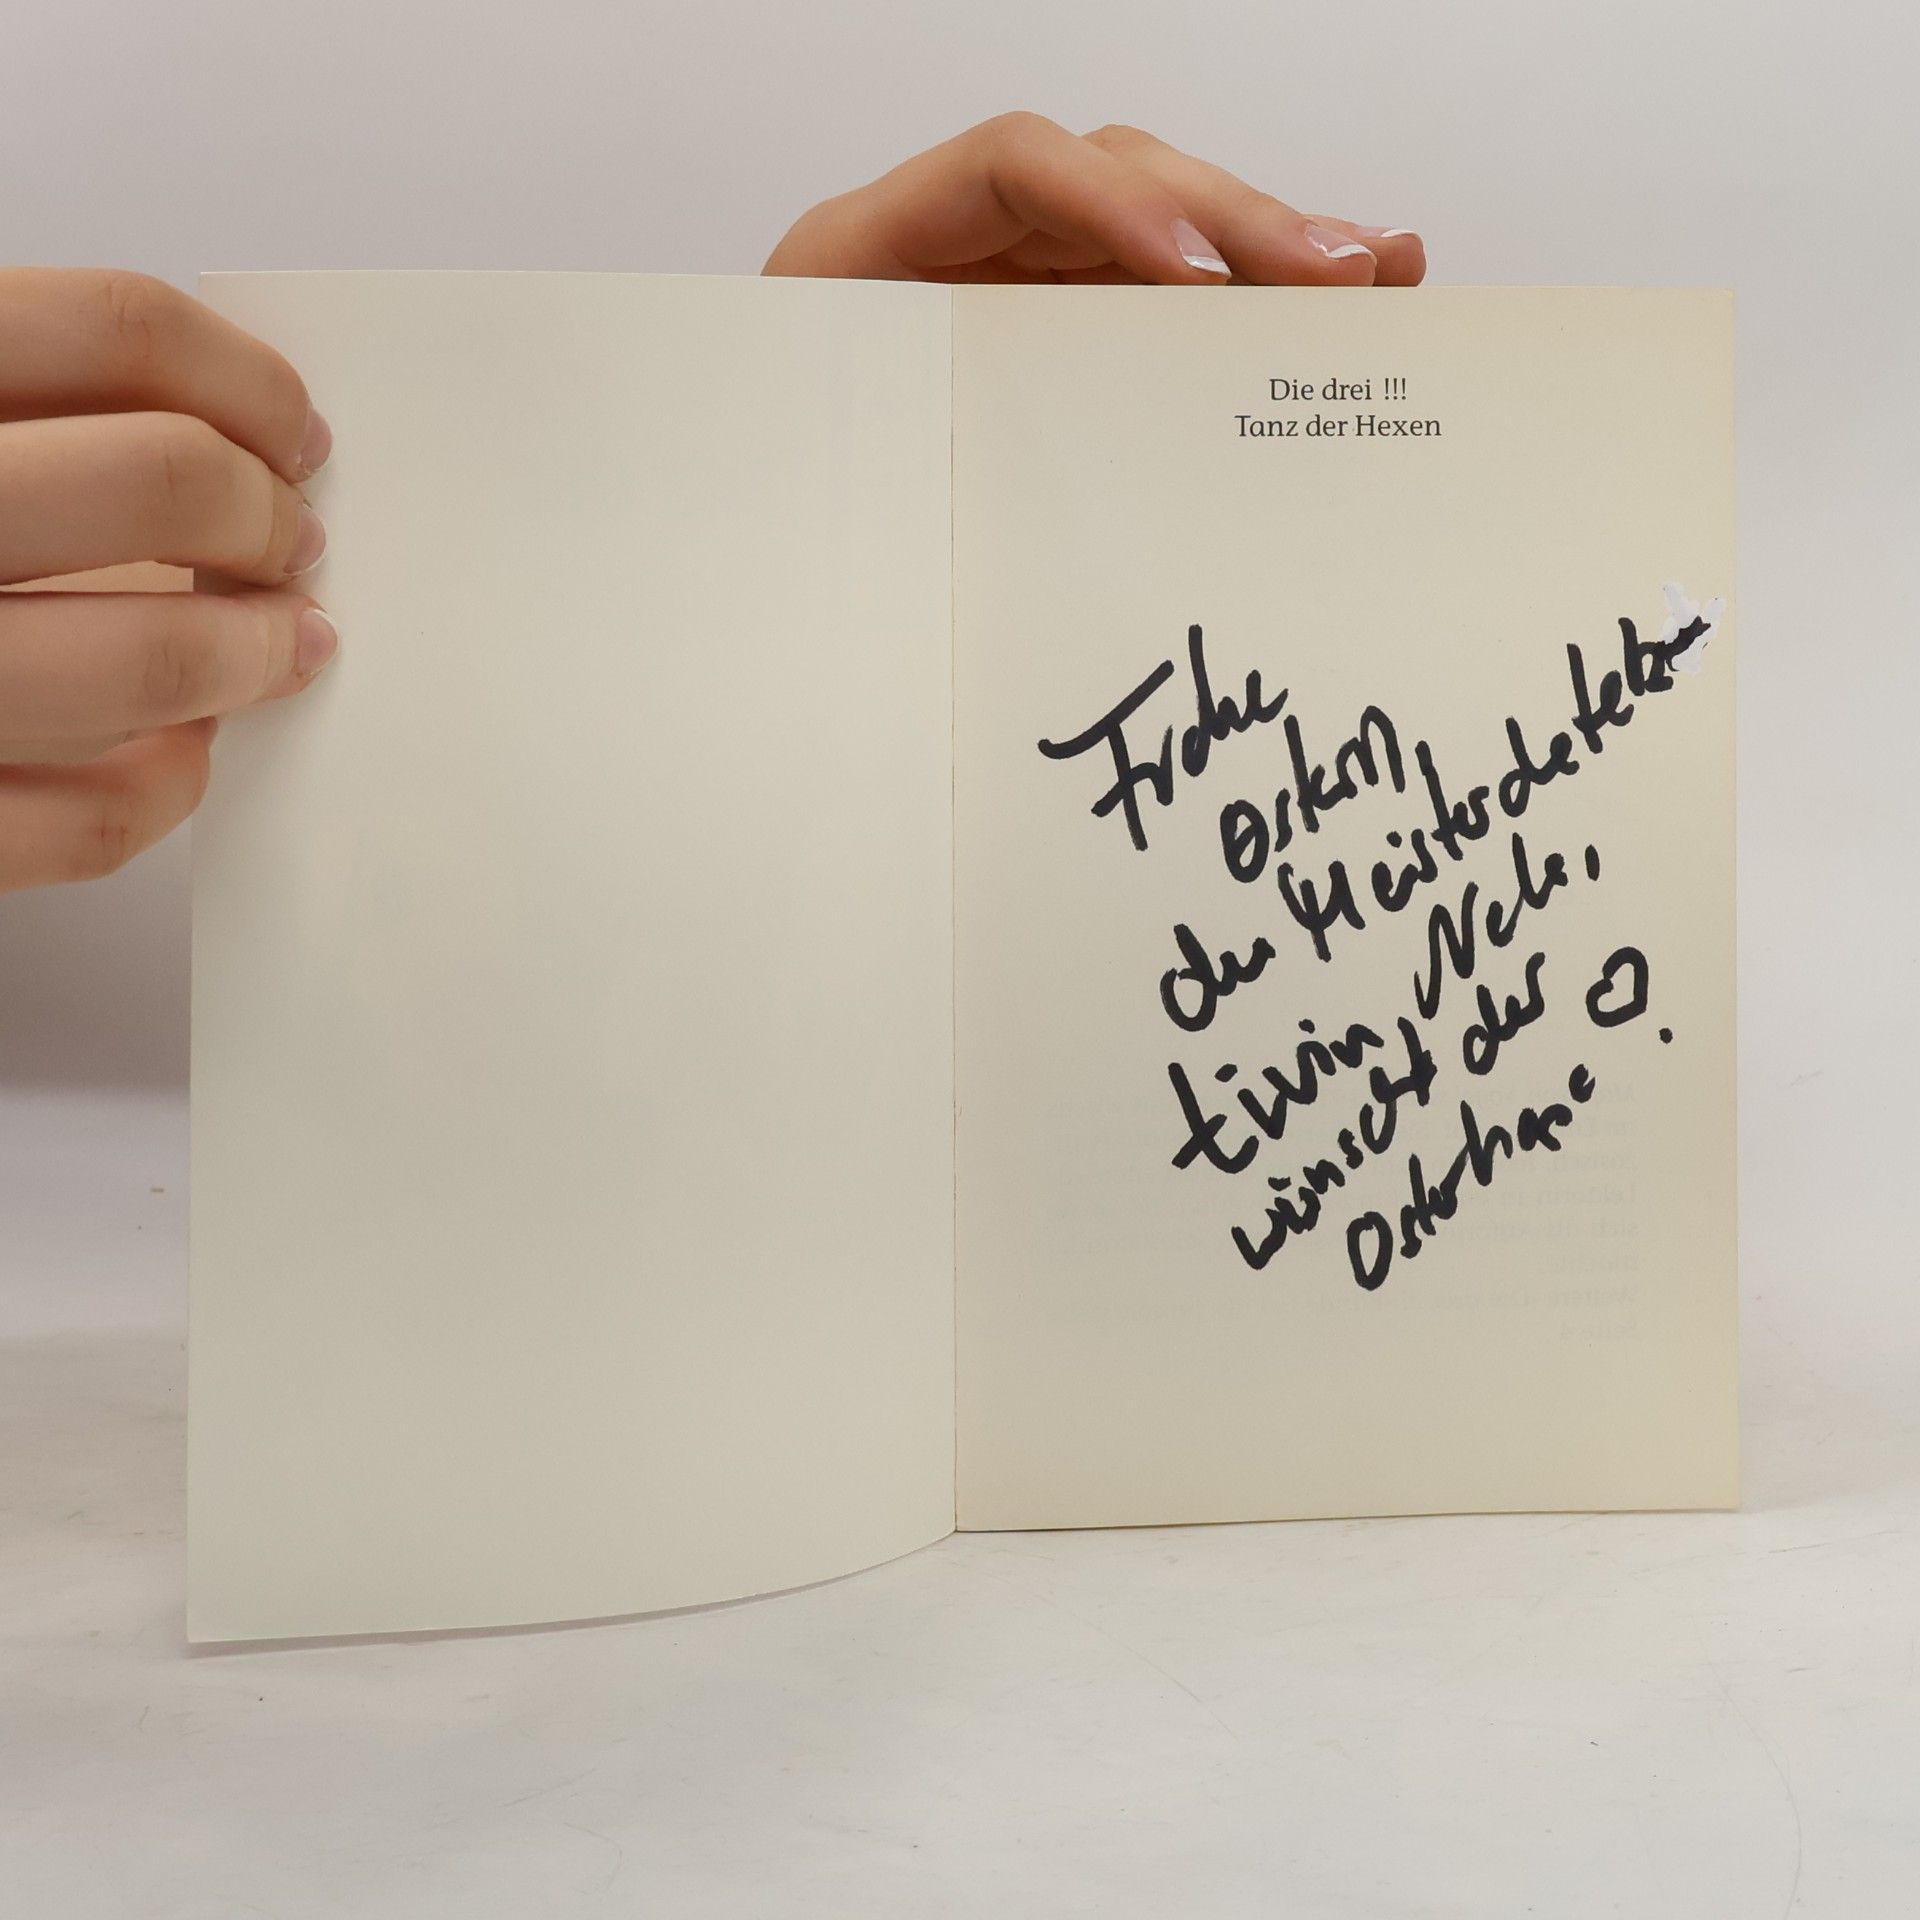 Die drei !!!
Tanz der Hexen
Frohe
Ostern
der Meisterdetek-
tivin Nele,
wünscht der
Osterhase ♡.